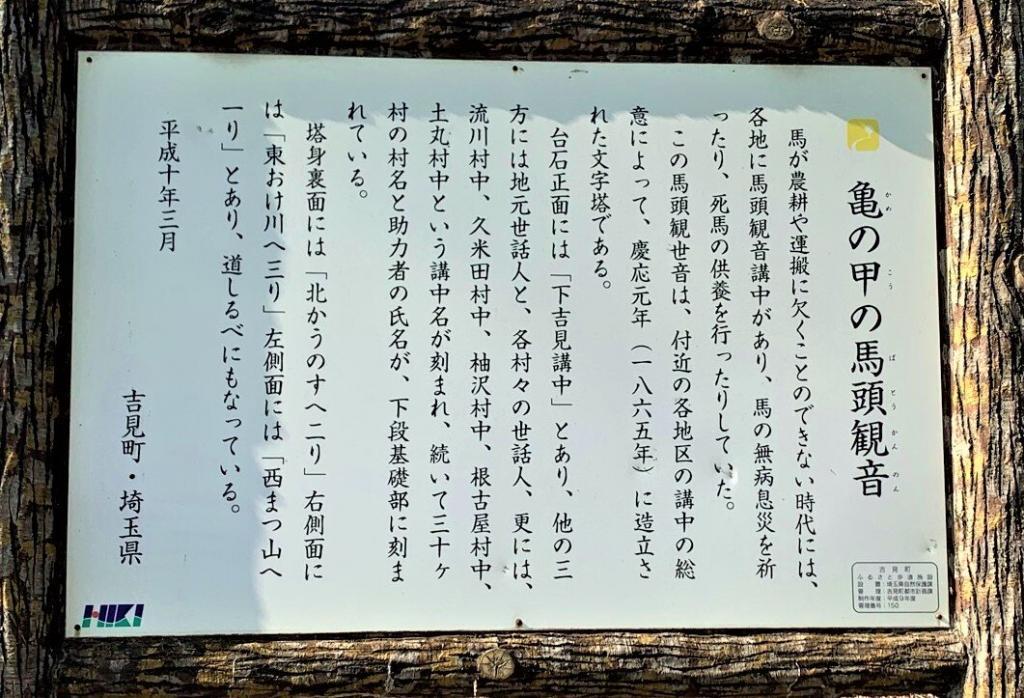 亀の甲の馬頭観音
かめ こう ばとうかんのん
馬が農耕や運搬に欠くことのできない時代には、
各地に馬頭観音講中があり、馬の無病息災を祈
ったり、死馬の供養を行ったりしていた。
この馬頭観世音は、付近の各地区の講中の総
意によって、慶応元年（一八六五年）に造立さ
れた文字塔である。
台石正面には「下吉見講中」とあり、他の三
方には地元世話人と、各村々の世話人、更には、
流川村中、久米田村中、柚沢村中、根古屋村中、
土丸村中という講中名が刻まれ、続いて三十ヶ
村の村名と助力者の氏名が、下段基礎部に刻ま
れている。
塔身裏面には「北かうのすへ二り」右側面に
は「東おけ川へ三り」左側面には「西まつ山へ
一り」とあり、道しるべにもなっている。
平成十年三月
吉見町・埼玉県
吉見町
ふるさと歩道施設
設置：埼玉県自然保護課
管理：吉見町都市計画課
制作年度：平成9年度
管理番号：150
HIKI